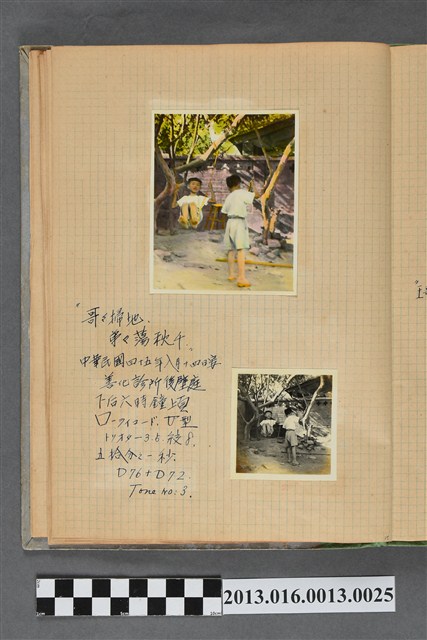 "哥々掃地.
弟々蕩秋千.
中華民國四十五年八月十四日寫
善化診所後壁庭
下后六時鐘頃
ローライコード. V型
3.5. 絞8.
五拾分之一秒.
D76+D72.
Tone no: 3.
2013.016.0013.0025